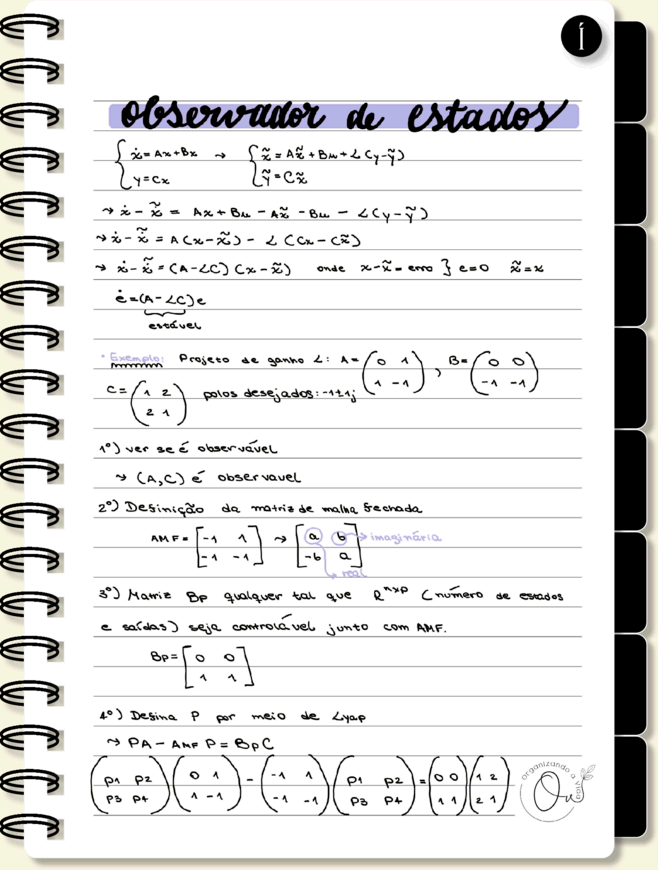 Í
observador de estados
{ẋ = Ax + Bx → {x̃ = Ax̃ + Bu + L(y - ỹ)
y = Cx ỹ = Cx̃
→ ẋ - x̃̇ = Ax + Bu - Ax̃ - Bu - L(y - ỹ)
→ ẋ - x̃̇ = A(x - x̃) - L(Cx - Cx̃)
→ ẋ - x̃̇ = (A - LC)(x - x̃) onde x - x̃ = erro } e = 0 x̃ = x
ė = (A - LC)e
estável
* Exemplo: Projeto de ganho L: A = (0 1; 1 -1), B = (0 0; -1 -1)
C = (1 2; 2 1) polos desejados: -1±1j
1º) ver se é observável
→ (A,C) é observavel
2º) Definição da matriz de malha fechada
AMF = [-1 1; -1 -1] → [a b; -b a] → imaginária
real
3º) Matriz Bp qualquer tal que R^nxp (número de estados
e saídas) seja controlável junto com AMF.
Bp = [0 0; 1 1]
4º) Defina P por meio de Lyap
→ PA - AMF P = BpC
(P1 P2; P3 P4)(0 1; 1 -1) - (-1 1; -1 -1)(P1 P2; P3 P4) = (0 0; 1 1)(1 2; 2 1)
organizando a vida